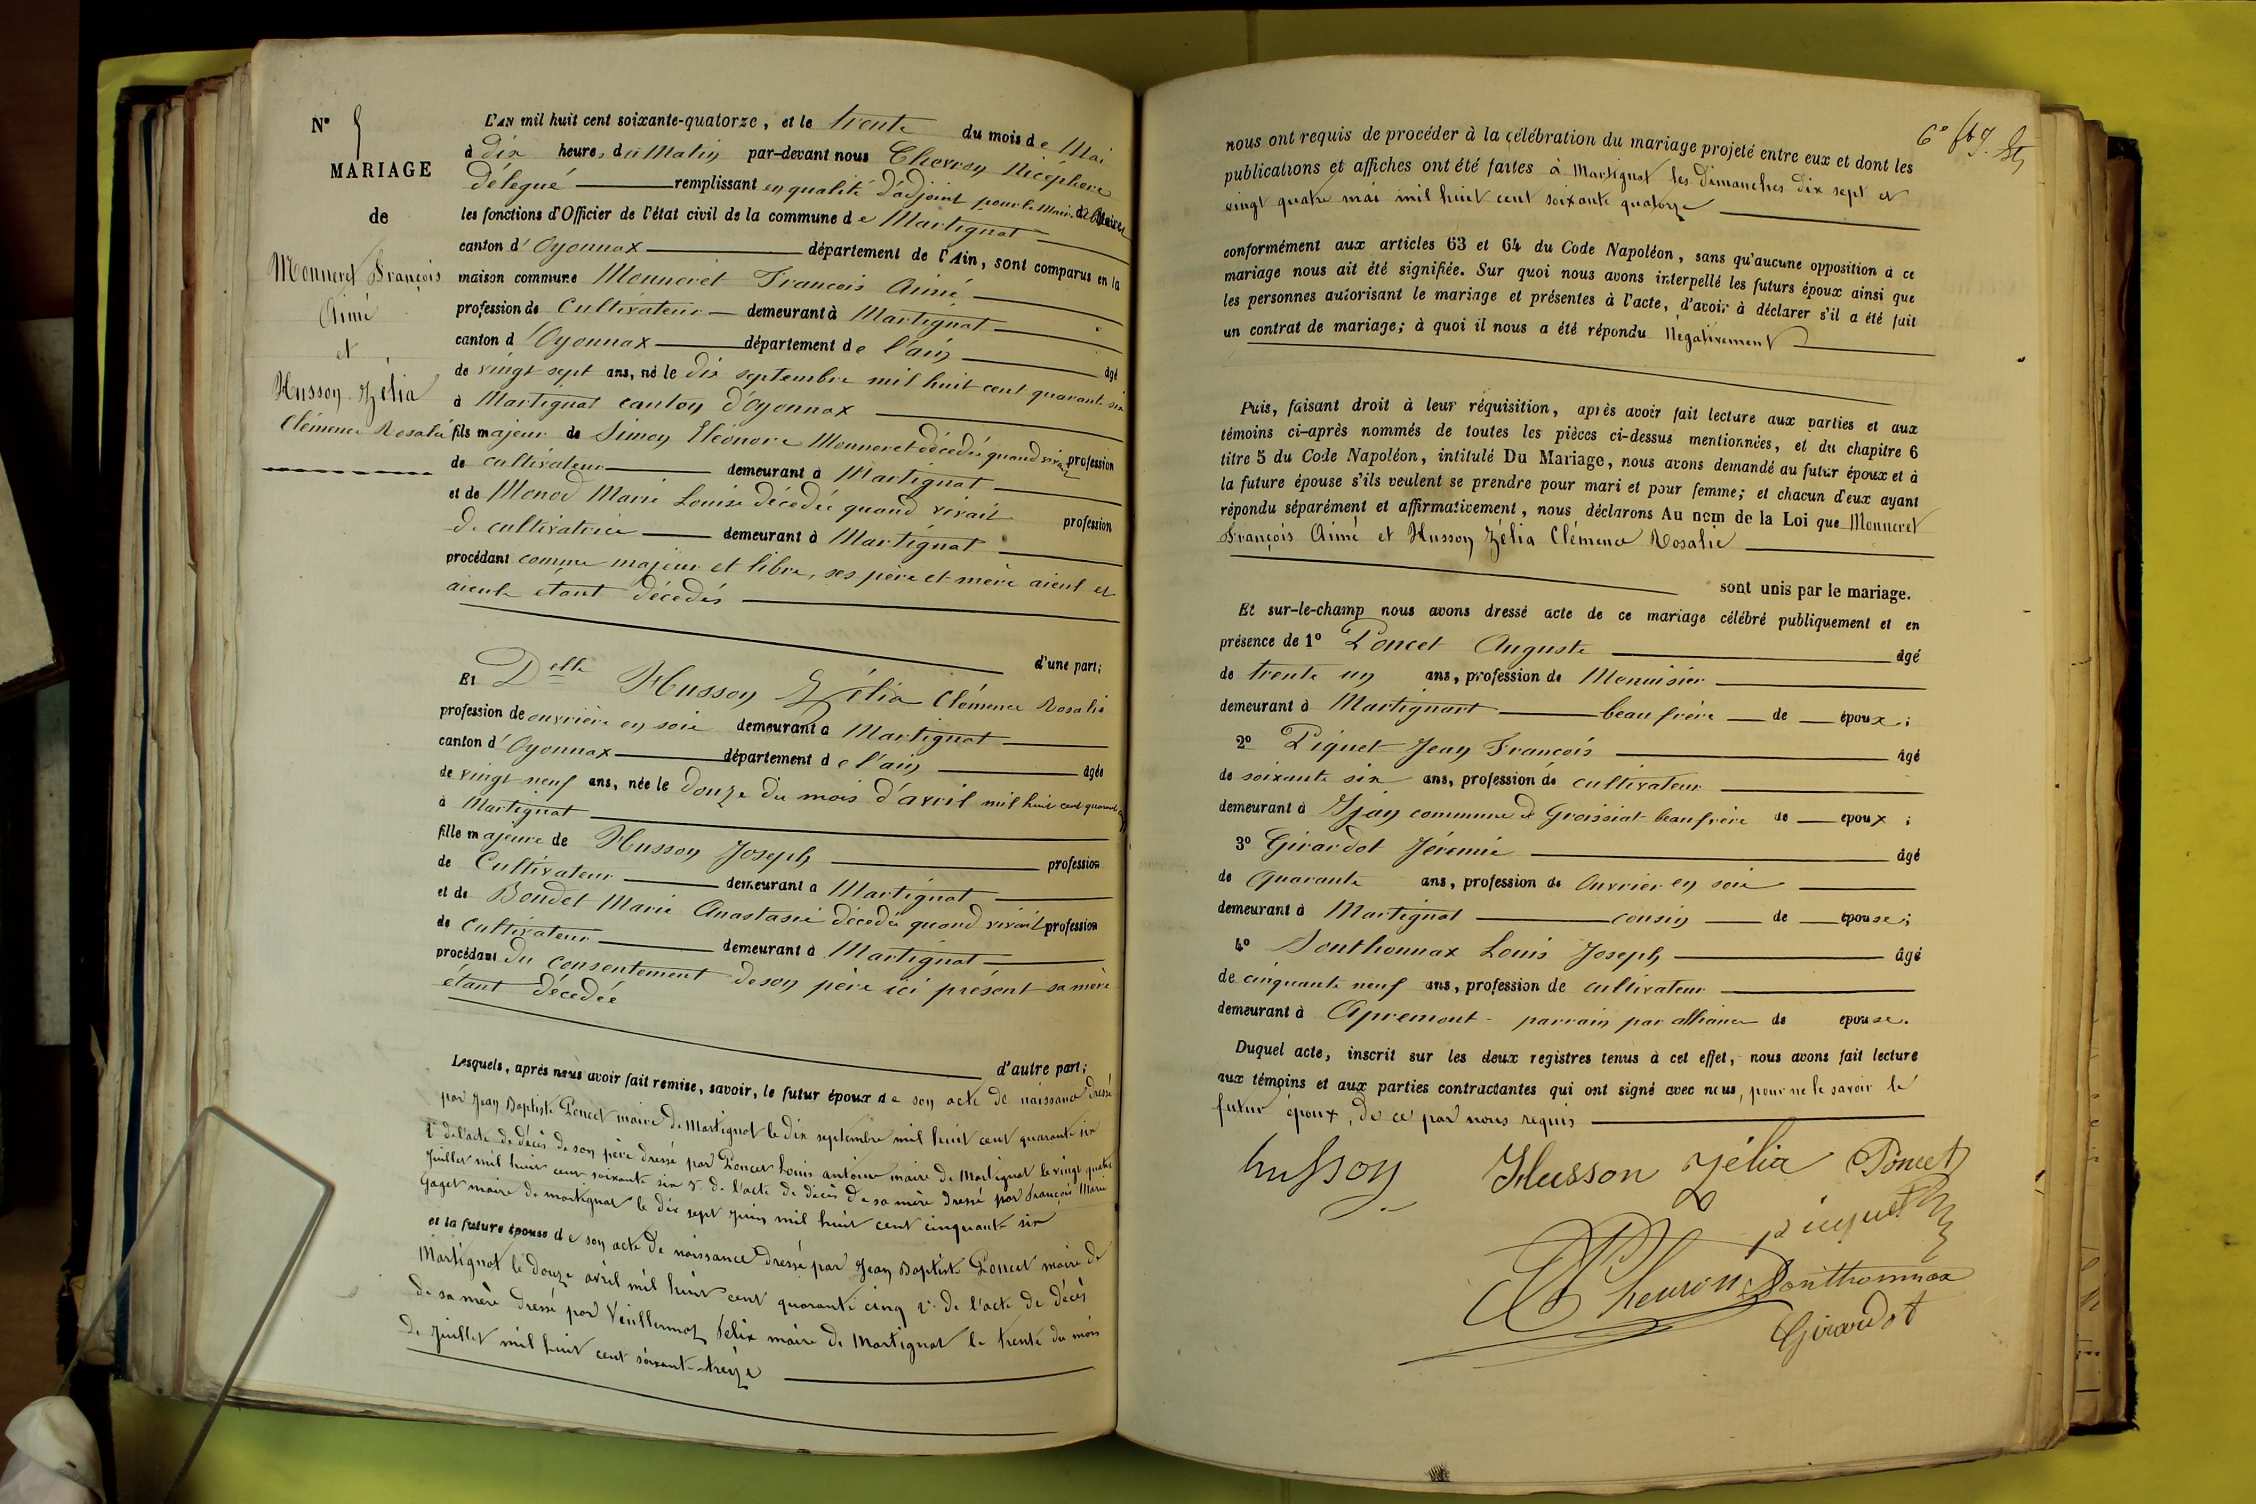 N° 5
MARIAGE
de
Monneret François
Aimé
et
Husson Zélia
Clémence Rosalie
L'AN mil huit cent soixante-quatorze, et le trente du mois de Mai
à dix heures du Matin par-devant nous Chevron Nicéphore
délegué remplissant en qualité d'adjoint pour le Maire
les fonctions d'Officier de l'état civil de la commune de Martignat
canton d'Oyonnax département de l'Ain, sont comparus en la
maison commune Monneret Francois Aimé
profession de Cultivateur demeurant à Martignat
canton d'Oyonnax département de l'ain âgé
de vingt sept ans, né le dix septembre mil huit cent quarante six
à Martignat canton d'Oyonnax
fils majeur de Simon Eléonore Monneret décédé quand vivait profession
de cultivateur demeurant à Martignat
et de Monod Marie Louise décédée quand vivait profession
de cultivatrice demeurant à Martignat
procédant comme majeur et libre, ses père et mère aieul et
aieule étant décédés
d'une part;
Et Delle Husson Zélia Clémence Rosalie
profession de ouvrière en soie demeurant à Martignat
canton d'Oyonnax département de l'ain âgée
de vingt neuf ans, née le douze du mois d'avril mil huit cent quarante cinq
à Martignat
fille majeure de Husson Joseph profession
de Cultivateur demeurant a Martignat
et de Bondet Marie Anastasie décedée quand vivait profession
de cultivateur demeurant à Martignat
procédant du consentement de son père ici présent sa mère
étant décédée
d'autre part;
Lesquels, après nous avoir fait remise, savoir, le futur époux de son acte de naissance dressé
par Jean Baptiste Poncet maire de Martignat le dix septembre mil huit cent quarante six
2° de l'acte de décès de son père dressé par Poncet Louis antoine maire de Martignat le vingt quatre
Juillet mil huit cent soixante six 3° de l'acte de décès de sa mère dressé par François Marie
Gaget maire de martignat le dix sept Juin mil huit cent cinquante six
et la future épouse de son acte de naissance dressé par Jean Baptiste Poncet maire de
Martignat le douze avril mil huit cent quarante cinq 2° de l'acte de décès
de sa mère dressé par Vuillermoz Félix maire de Martignat le trente du mois
de Juillet mil huit cent soixante-treize
6e
nous ont requis de procéder à la célébration du mariage projeté entre eux et dont les
publications et affiches ont été faites à Martignat les dimanches dix sept et
vingt quatre mai mil huit cent soixante quatorze
conformément aux articles 63 et 64 du Code Napoléon, sans qu'aucune opposition à ce
mariage nous ait été signifiée. Sur quoi nous avons interpellé les futurs époux ainsi que
les personnes autorisant le mariage et présentes à l'acte, d'avoir à déclarer s'il a été fait
un contrat de mariage; à quoi il nous a été répondu Négativement
Puis, faisant droit à leur réquisition, après avoir fait lecture aux parties et aux
témoins ci-après nommés de toutes les pièces ci-dessus mentionnées, et du chapitre 6
titre 5 du Code Napoléon, intitulé Du Mariage, nous avons demandé au futur époux et à
la future épouse s'ils veulent se prendre pour mari et pour femme; et chacun d'eux ayant
répondu séparément et affirmativement, nous déclarons Au nom de la Loi que Monneret
François Aimé et Husson Zélia Clémence Rosalie
sont unis par le mariage.
Et sur-le-champ nous avons dressé acte de ce mariage célébré publiquement et en
présence de 1° Poncet Auguste âgé
de trente un ans, profession de Menuisier
demeurant à Martignart beau frère de époux;
2° Piquet Jean François âgé
de soixante six ans, profession de cultivateur
demeurant à Ijean commune de Groissiat beau frère de epoux;
3° Girardot Jérémie âgé
de Quarante ans, profession de Ouvrier en soie
demeurant à Martignat cousin de épouse;
4° Sonthonnax Louis Joseph âgé
de cinquante neuf ans, profession de cultivateur
demeurant à Apremont parrain par alliance de epouse.
Duquel acte, inscrit sur les deux registres tenus à cet effet, nous avons fait lecture
aux témoins et aux parties contractantes qui ont signé avec nous, pour ne le savoir le
futur époux, de ce par nous requis
husson Husson Zélia Poncet
picquet
Chevron Sonthonnax
Girardot